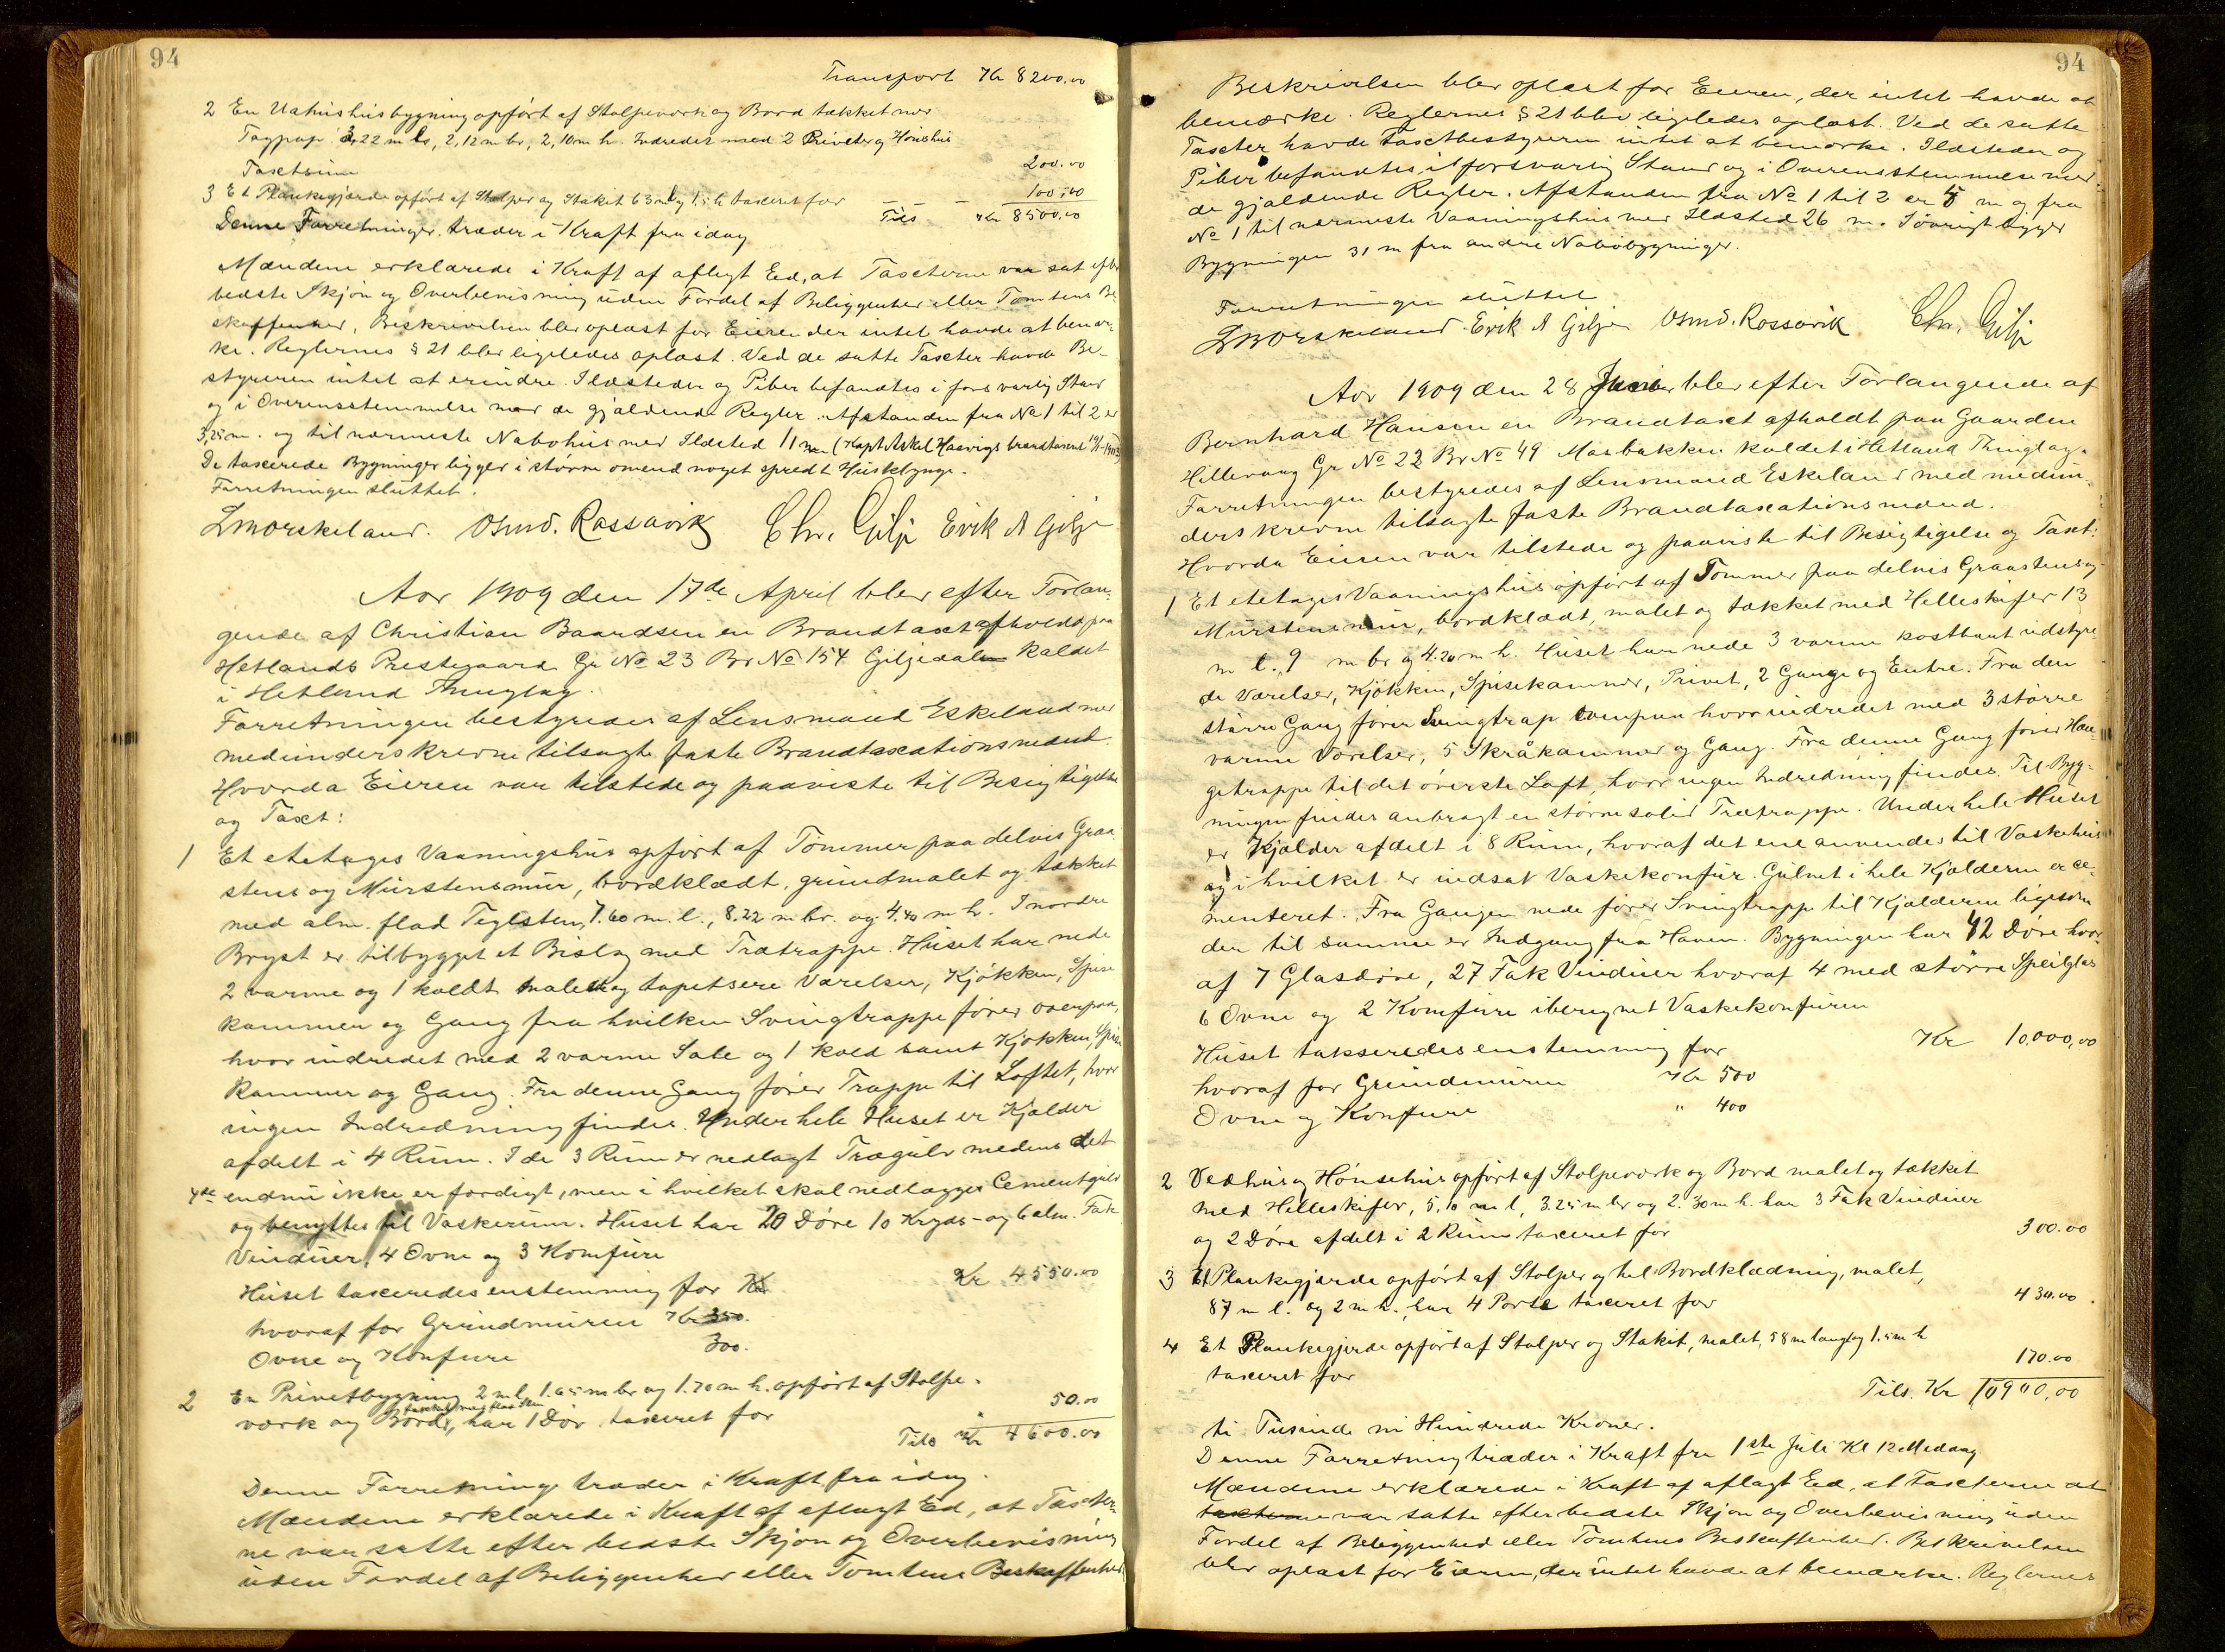 94
Transport Kr 8200.00
2 En Udhushusbygning opført af Stolpeverk og Bord tækket med
Tagpap 3,22 m l, 2,12 m br, 2,10 m h. Indredet med 2 Priveter og Hønshus
Taxtsum 200.00
3 Et Plankegjærde opført af Stolper og Stakit 63 m l og 1.5 h taxeret for 100.00
Tils Kr 8500.00
Denne Forretninger træder i Kraft fra idag
Mændene erklærede i Kraft af aflegt Ed, at Taxterne var sat efter
bedste Skjøn og Overbevisning uden Fordel af Beliggenhed eller Tomtens Be-
skaffenhed, Beskrivelsen blev oplæst for Eieren der intet havde at bemær-
ke. Reglernes § 21 blev ligeledes oplæst. Ved de satte Taxter havde Be-
styreren intet at erindre. Ildsteder og Piber befandtes i forsvarlig Stand
og i Overensstemmelse med de gjældende Regler. Afstanden fra No 1 til 2 er
3,25 m. og til nærmeste Nabohus med Ildsted 11 m (Kapt. Askel Haavigs brandtaxeret
De taxerede Bygninger ligger i større omend noget spredt Husklynge.
Forretningen sluttet.
LMorskeland. Osmd. Rossavik Chr. Gilje Erik A Gilje
Aar 1909 den 17de April blev efter Forlan-
gende af Christian Baardsen en Brandtaxt afholdt paa
Hetlands Prestegaard Gr No 23 Br No 154 Giljedalen kaldet
i Hetland Thinglag.
Forretningen bestyredes af Lensmand Eskeland med
medunderskrevne tilsagte faste Brandtaxationsmænd.
Hvorda Eieren var tilstede og paaviste til Besigtigelse
og Taxt:
1 Et etetages Vaaningshus opført af Tømmer paa delvis Graa
stens og Murstensmur, bordklædt, grundmalet og tækket
med alm. flad Teglsten, 7.60 m. l., 8.22 m br. og 4.40 m h. I nordre
Bryst er tilbygget et Bislag med Trætrappe. Huset har nede
2 varme og 1 koldt malet og tapetsere Værelser, Kjøkken, Spise
kammer og Gang fra hvilken Svingtrappe fører ovenpaa,
hvor indredet med 2 varme Sale og 1 kold samt Kjøkken, Spise
kammer og Gang. Fra denne Gang fører Trappe til Loftet, hvor
ingen Indredning findes. Under hele Huset er Kjælder
afdelt i 4 Rum. I de 3 Rum er nedlagt Trægulv medens det
4de endnu ikke er færdigt, men i hvilket skal nedlægges Cementgulv
og benyttes til Vaskerum. Huset har 20 Døre 10 Kryds- og 6 alm. Fak
Vinduer, 4 Ovne og 3 Komfure
Huset taxeredes enstemmig for Kr Kr 4550.00
hvoraf for Grundmuren Kr 350.
Ovne og Konfure 300.
2 En Privetbygning 2 m l, 1.65 m br og 1.70 m h. opført af Stolpe-
værk og Bord, tækket med flad Sten har 1 Dør taxeret for 50.00
Tils Kr 4600.00
Denne Forretning træder i Kraft fra idag.
Mændene erklærede i Kraft af aflagt Ed, at Taxter-
ne var satte efter bedste Skjøn og Overbevisning
uden Fordel af Beliggenhed eller Tomtens Beskaffenhed
94
Beskrivelsen blev oplæst for Eieren, der intet havde at
bemærke. Reglernes § 21 blev ligeledes oplæst. Ved de satte
Taxter havde Taxtbestyreren intet at bemærke. Ildsteder og
Piber befandtes i forsvarlig Stand og i Overensstemmelse med
de gjældende Regler. Afstanden fra No 1 til 2 er 5 m og fra
No 1 til nærmeste Vaaningshus med Ildsted 26 m. Iøvrigt ligger
Bygningen 31 m fra andre Nabobygninger.
Forretningen sluttet
LMorskeland. Erik A Gilje Osmd. Rossavik Chr. Gilje
Aar 1909 den 28 Juni blev efter Forlangende af
Bernhard Hansen en Brandtaxt afholdt paa Gaarden
Hillevaag Gr No 22 Br No 49 Maabakken kaldet i Hetland Thinglag.
Forretningen bestyredes af Lensmand Eskeland med medun-
derskrevne tilsagte faste Brandtaxationsmænd.
Hvorda Eieren var tilstede og paaviste til Besigtigelse og Taxt:
1 Et etetages Vaaningshus opført af Tømmer paa delvis Graastens og
Murstensmur, bordklædt, malet og tækket med Helleskifer 13
m l. 9 m br og 4.20 m h. Huset har nede 3 varme kostbart udstyre
de Værelser, Kjøkken, Spisekammer, Privet, 2 Gange og Entre. Fra den
større Gang fører Svingtrap ovenpaa hvor indredet med 3 større
varme Værelser, 5 Skråkammer og Gang. Fra denne Gang fører Hæn
getrappe til det øverste Loft, hvor ingen Indredning findes. Til Byg-
ningen findes anbragt en større solid Trætrappe. Under hele Huset
er Kjælder afdelt i 8 Rum, hvoraf det ene anvendes til Vaskehus
og i hvilket er indsat Vaskekonfur. Gulvet i hele Kjælderen er ce-
menteret. Fra Gangen nede fører Svingtrapp til Kjælderen ligesom
der til samme er Indgang fra Haven. Bygningen har 42 Døre hvor-
af 7 Glasdøre, 27 Fak Vinduer hvoraf 4 med større Speilglas
6 Ovne og 2 Komfure iberegnet Vaskekonfuren
Huset takseredes enstemmig for Kr 10.000,00
hvoraf for Grundmuren Kr 500
Ovne og Konfure " 400
2 Vedhus og Hønsehus opført af Stolpeværk og Bord malet og tækket
med Helleskifer, 5.10 m l, 3.25 m br og 2.30 m h. har 3 Fak Vinduer
og 2 Døre afdelt i 2 Rum taxeret for 300.00
3 Et Plankegjærde opført af Stolper og hel Bordklædning, malet,
87 m l. og 2 m h., har 4 Porte taxeret for 430.00.
4 Et Plankegjerde opført af Stolper og Stakit, malet, 58 m langt og 1.5 m h
taxeret for 170.00
Tils. Kr 10900,00
ti Tusinde ni Hundrede Kroner.
Denne Forretning træder i Kraft fra 1ste Juli Kl 12 Middag
Mændene erklærede i Kraft af aflagt Ed, at Taxterne at
taxterne var satte efter bedste Skjøn og Overbevisning uden
Fordel af Beliggenhed eller Tomtens Beskaffenhed. Beskrivelsen
blev oplæst for Eieren, der intet havde at bemærke. Reglernes